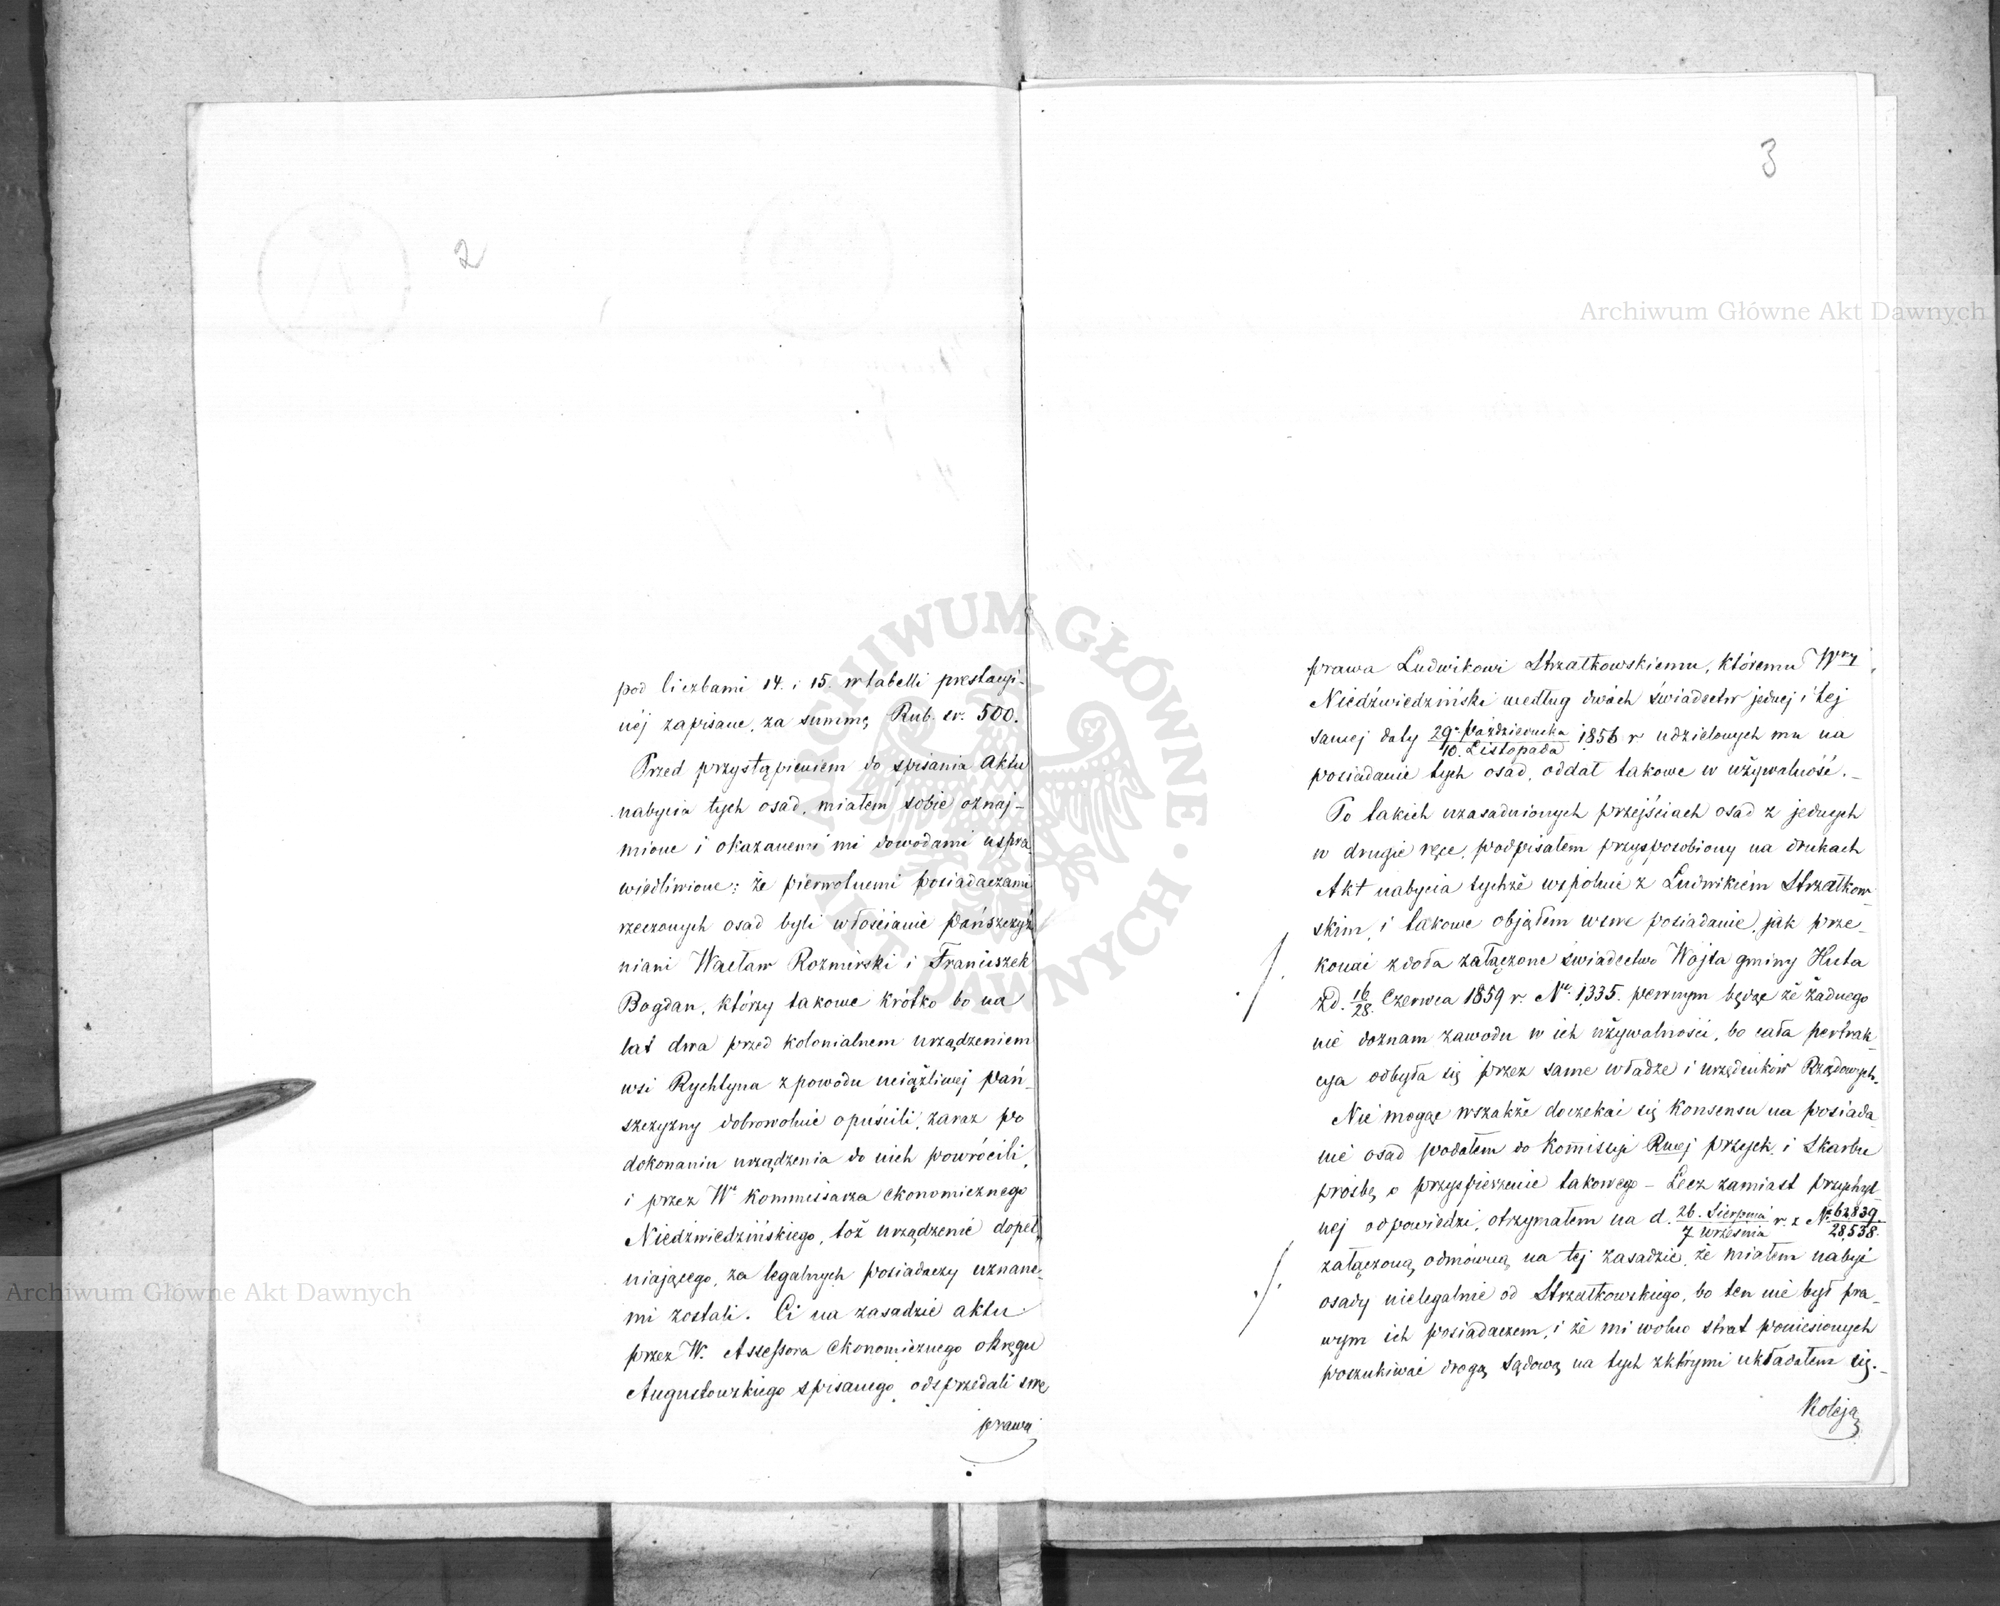 2
pod liczbami 14. i 15. w tabelli prestacyj-
néj zapisane, za summę Rub. sr. 500.
Przed przystąpieniem do spisania Aktu
nabycia tych osad, miałem sobie oznaj-
mione i okazanemi mi dowodami uspra-
wiedliwione; że pierwotnemi posiadaczami
rzeczonych osad byli włościanie pańszczyź-
niani Wacław Rozmirski i Franciszek
Bogdan, którzy takowe krótko bo na
lat dwa przed kolonialnem urządzeniem
wsi Rychtyna z powodu uciążliwej pań-
szczyzny dobrowolnie opuścili, zaraz po
dokonaniu urządzenia do nich powrócili,
i przez Wo Kommissarza ekonomicznego
Niedźwiedzińskiego, toż urządzenie dopeł-
niającego, za legalnych posiadaczy uznane-
mi zostali. Ci na zasadzie aktu
przez W. Assessora Ekonomicznego okręgu
Augustowskiego spisanego, odsprzedali swe
prawa
3
prawa Ludwikowi Strzałkowskiemu, któremu Wny
Niedźwiedziński według dwóch świadectw jednej i tej
samej daty 29. Października / 10. Listopada 1856 r udzielonych mu na
posiadanie tych osad, oddał takowe w używalność. –
Po takich uzasadnionych przejściach osad z jednych
w drugie ręce, podpisałem przysposobiony na drukach
Akt nabycia tychże wspólnie z Ludwikiem Strzałkow-
skim, i takowe objąłem w swe posiadanie, jak prze-
konać zdoła załączone świadectwo Wójta gminy Huta
z d. 16/28. Czerwca 1859 r. No. 1335. pewnym będąc że żadnego
nie doznam zawodu w ich używalności, bo cała pertrak-
cya odbyła się przez same władze i urzędników Rządowych.
Nie mogąc wszakże doczekać się Konsensu na posiada
nie osad podałem do Kommissyi Rzwej przych. i Skarbu
prośbę o przyspieszenie takowego – Lecz zamiast przychyl-
nej odpowiedzi, otrzymałem na d. 26. Sierpnia / 7 Września r. z No 62839 / 28,538.
załączoną odmówną na tej zasadzie, że miałem nabyć
osady nielegalnie od Strzałkowskiego, bo ten nie był pra-
wym ich posiadaczem, i że mi wolno strat poniesionych
poszukiwać drogą sądową na tych z którymi układałem się. –
Koleją
Archiwum Główne Akt Dawnych
Archiwum Główne Akt Dawnych
ARCHIWUM GŁÓWNE • AKT DAWNYCH